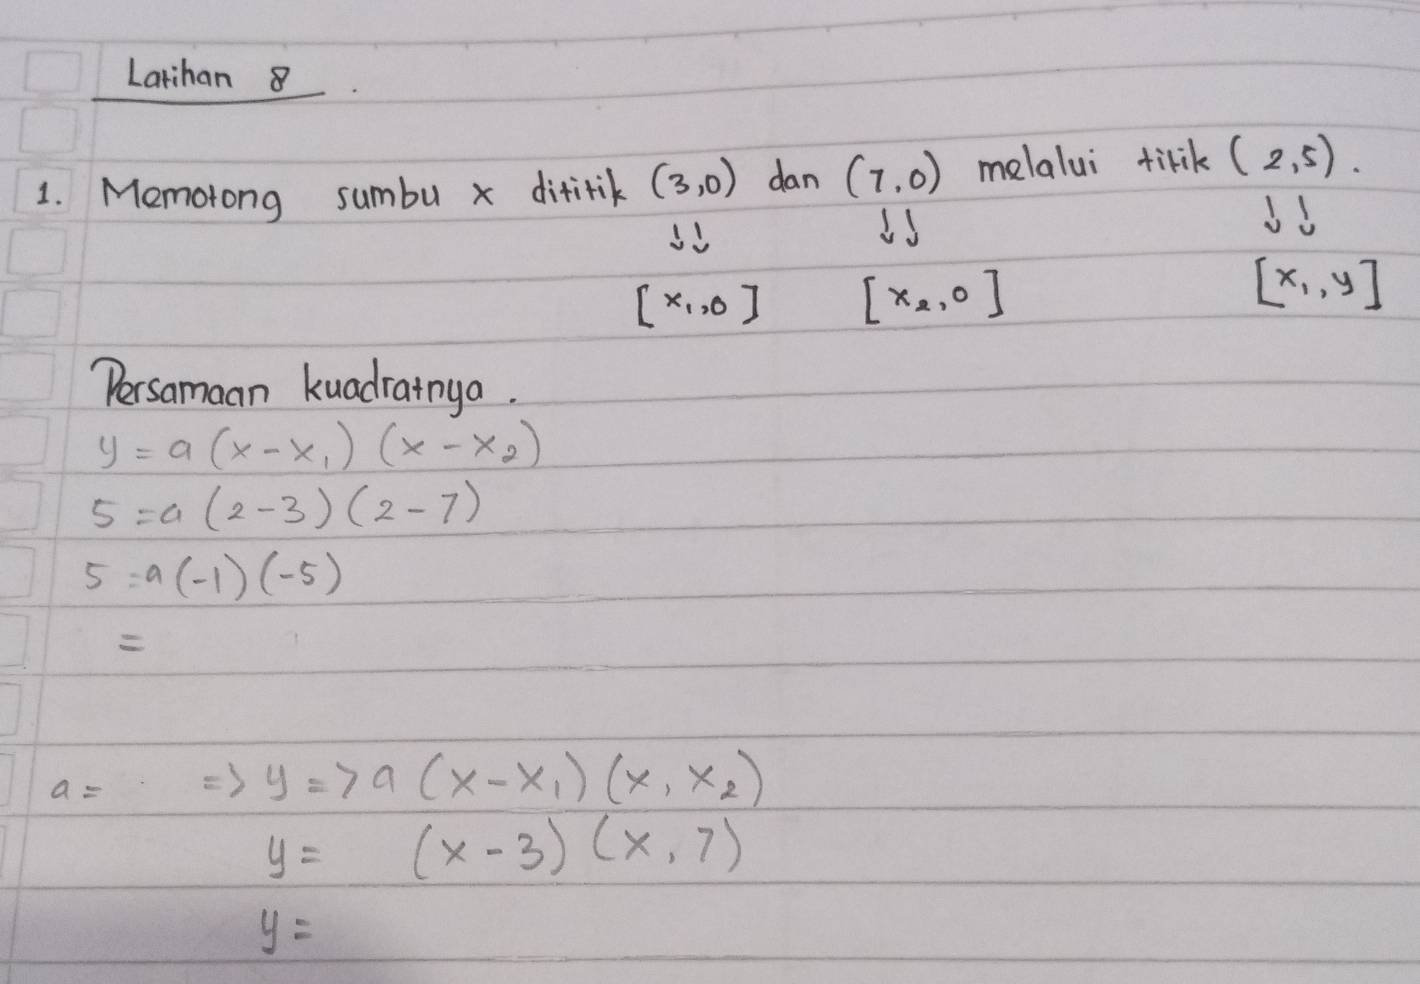 Latihan 8.
1. Memotong sumbu x dititik (3,0) dan (7,0) melalui titik (2,5).
↓↓ ↓↓ ↓↓
[x₁,0] [x₂,0] [x₁,y]
Persamaan kuadratnya.
y = a (x-x₁) (x-x₂)
5 = a (2-3) (2-7)
5 = a (-1) (-5)
=
a = => y => a (x-x₁) (x, x₂)
y = (x-3) (x, 7)
y =